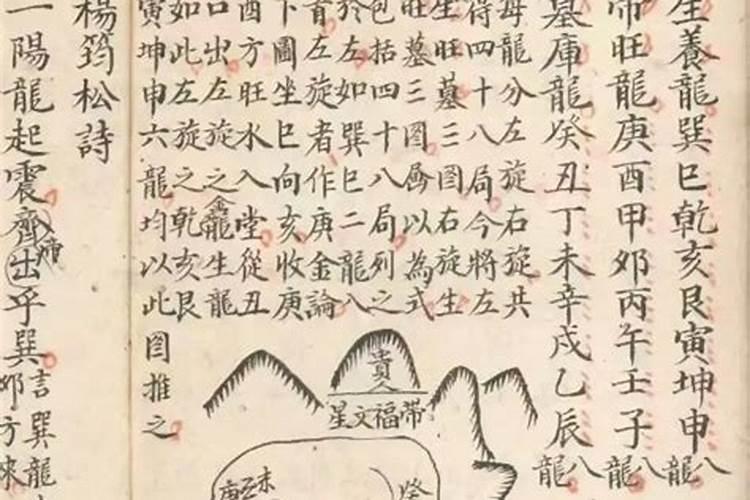 生養龍巽巳乾亥艮寅坤申八龍
帝旺龍庚酉甲卯丙午壬子八龍
墓庫龍癸丑丁未辛戌乙辰八龍
母龍分左旋右旋共
得四十八局今將左
生旺墓三图右旋生
旺墓三图畧以為式
包括四十八局列之
於左如巽巳二龍八
首左旋者作庚金論
下圖坐巳向亥收庚
酉方旺水入堂從丑
口出左旋之金龍生龍
如此左旋之乾亥艮
寅坤申六龍均以此图推之
貴人
帶福文星
癸
未
庚
楊筠松詩
一陽龍起震齊出乎巽
言巽龍
卯方來